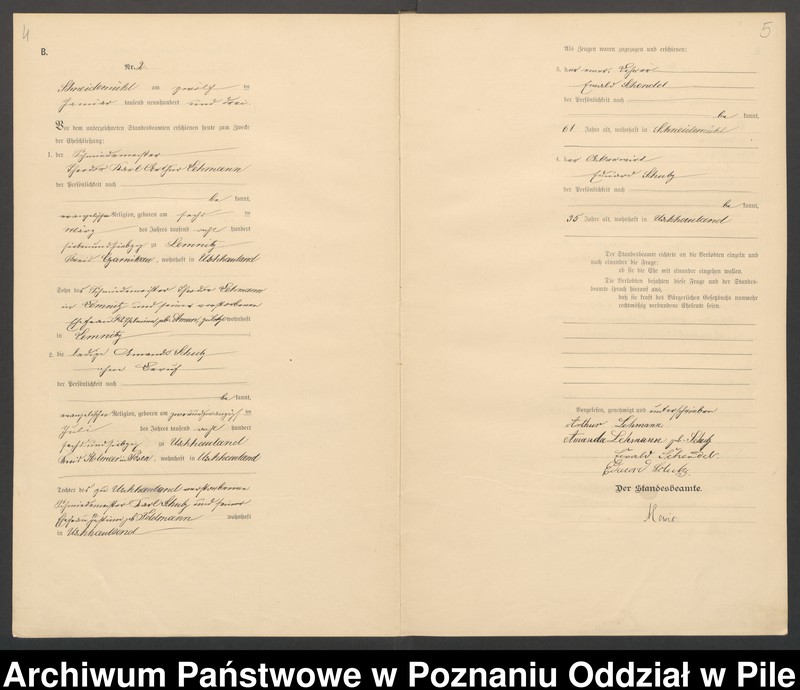 4
B.
Nr. 2
Schneidemühl am zwölf ten
Januar tausend neunhundert und drei
Vor dem unterzeichneten Standesbeamten erschienen heute zum Zwecke
der Eheschließung:
1. der Schmiedemeister
Theodor Karl Arthur Lehmann
der Persönlichkeit nach
be kannt,
evangelischer Religion, geboren am sechs ten
März des Jahres tausend acht hundert
siebenundsiebzig zu Lemnitz
Kreis Czarnikau, wohnhaft in Uschhauland
Sohn des Schmiedemeister Theodor Lehmann
in Lemnitz und seiner verstorbenen
Ehefrau geb. wohnhaft
in Lemnitz
2. die ledige Amanda Schulz
ohne Beruf
der Persönlichkeit nach
be kannt,
evangelischer Religion, geboren am zweiundzwanzig ten
Juli des Jahres tausend acht hundert
sechsundsiebzig zu Uschhauland
Kreis Kolmar in Posen, wohnhaft in Uschhauland
Tochter des zu Uschhauland verstorbenen
Schmiedemeister Karl Schulz und seiner
Ehefrau geb. Feldmann wohnhaft
in Uschhauland
5
Als Zeugen waren zugezogen und erschienen:
3. der
Ewald Schendel
der Persönlichkeit nach
be kannt,
61 Jahre alt, wohnhaft in Schneidemühl
4. der Ackerwirt
Eduard Schulz
der Persönlichkeit nach
be kannt,
35 Jahre alt, wohnhaft in Uschhauland
Der Standesbeamte richtete an die Verlobten einzeln und
nach einander die Frage:
ob sie die Ehe mit einander eingehen wollen.
Die Verlobten bejahten diese Frage und der Standes-
beamte sprach hierauf aus,
daß sie kraft des Bürgerlichen Gesetzbuchs nunmehr
rechtmäßig verbundene Eheleute seien.
Vorgelesen, genehmigt und unterschrieben
Arthur Lehmann
Amanda Lehmann geb. Schulz
Ewald Schendel.
Eduard Schulz.
Der Standesbeamte.
Archiwum Państwowe w Poznaniu Oddział w Pile